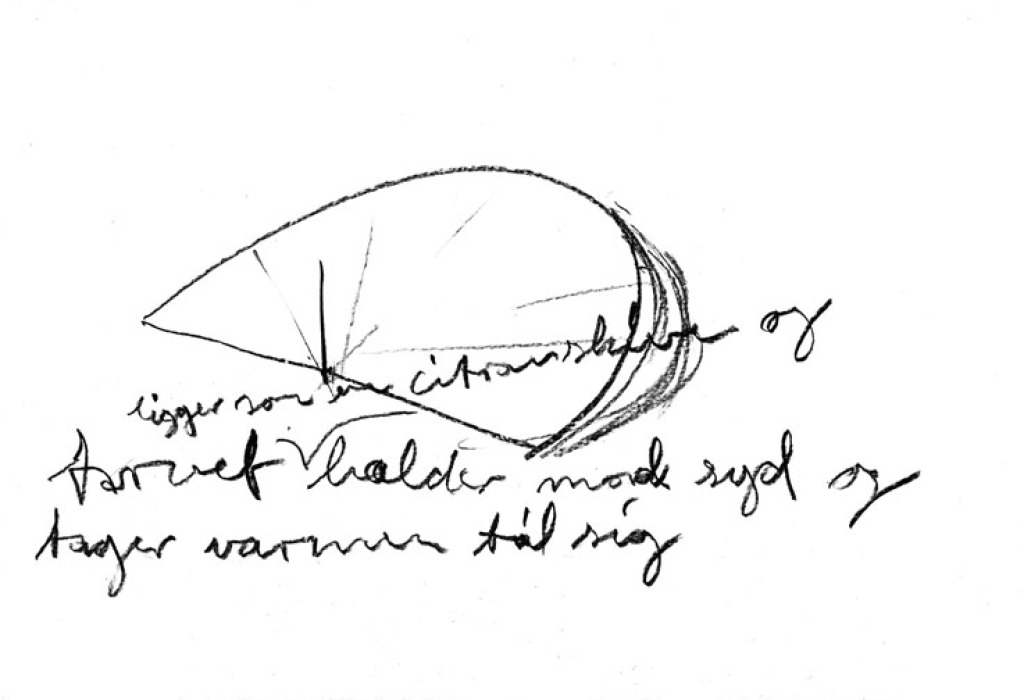 ligger som en citronskive og
torvet halder mod syd og
tager varmen til sig